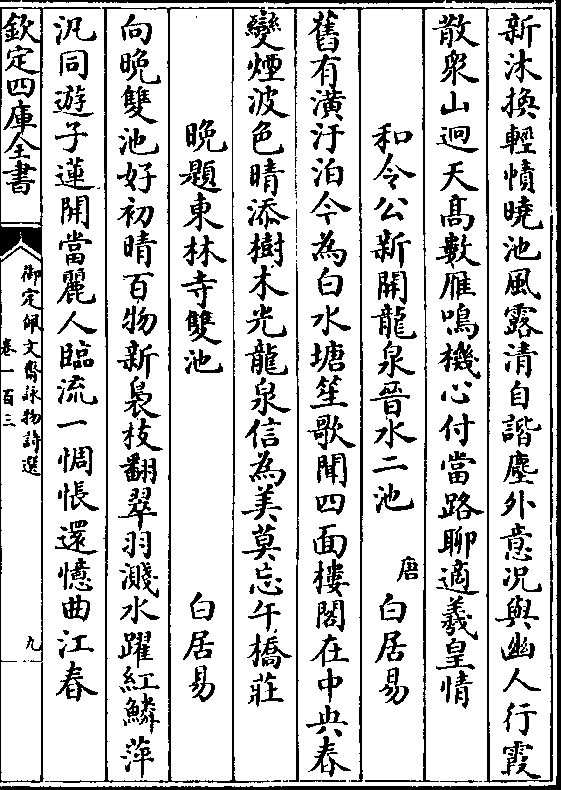 新沐換輕幘曉池風露清自諧塵外意况與幽人行霞
散衆山迥天高數雁鳴機心付當路聊適羲皇情
和令公新開龍泉晉水二池 唐 白居易
舊有潢汙泊今為白水塘笙歌聞四面樓閣在中央春
變煙波色晴添樹木光龍泉信為美莫忘午橋莊
晚題東林寺雙池 白居易
向晚雙池好初晴百物新裊枝翻翠羽濺水躍紅鱗萍
汎同遊子蓮開當麗人臨流一惆悵還憶曲江春
欽定四庫全書
御定佩文齋詠物詩選
卷一百三
九